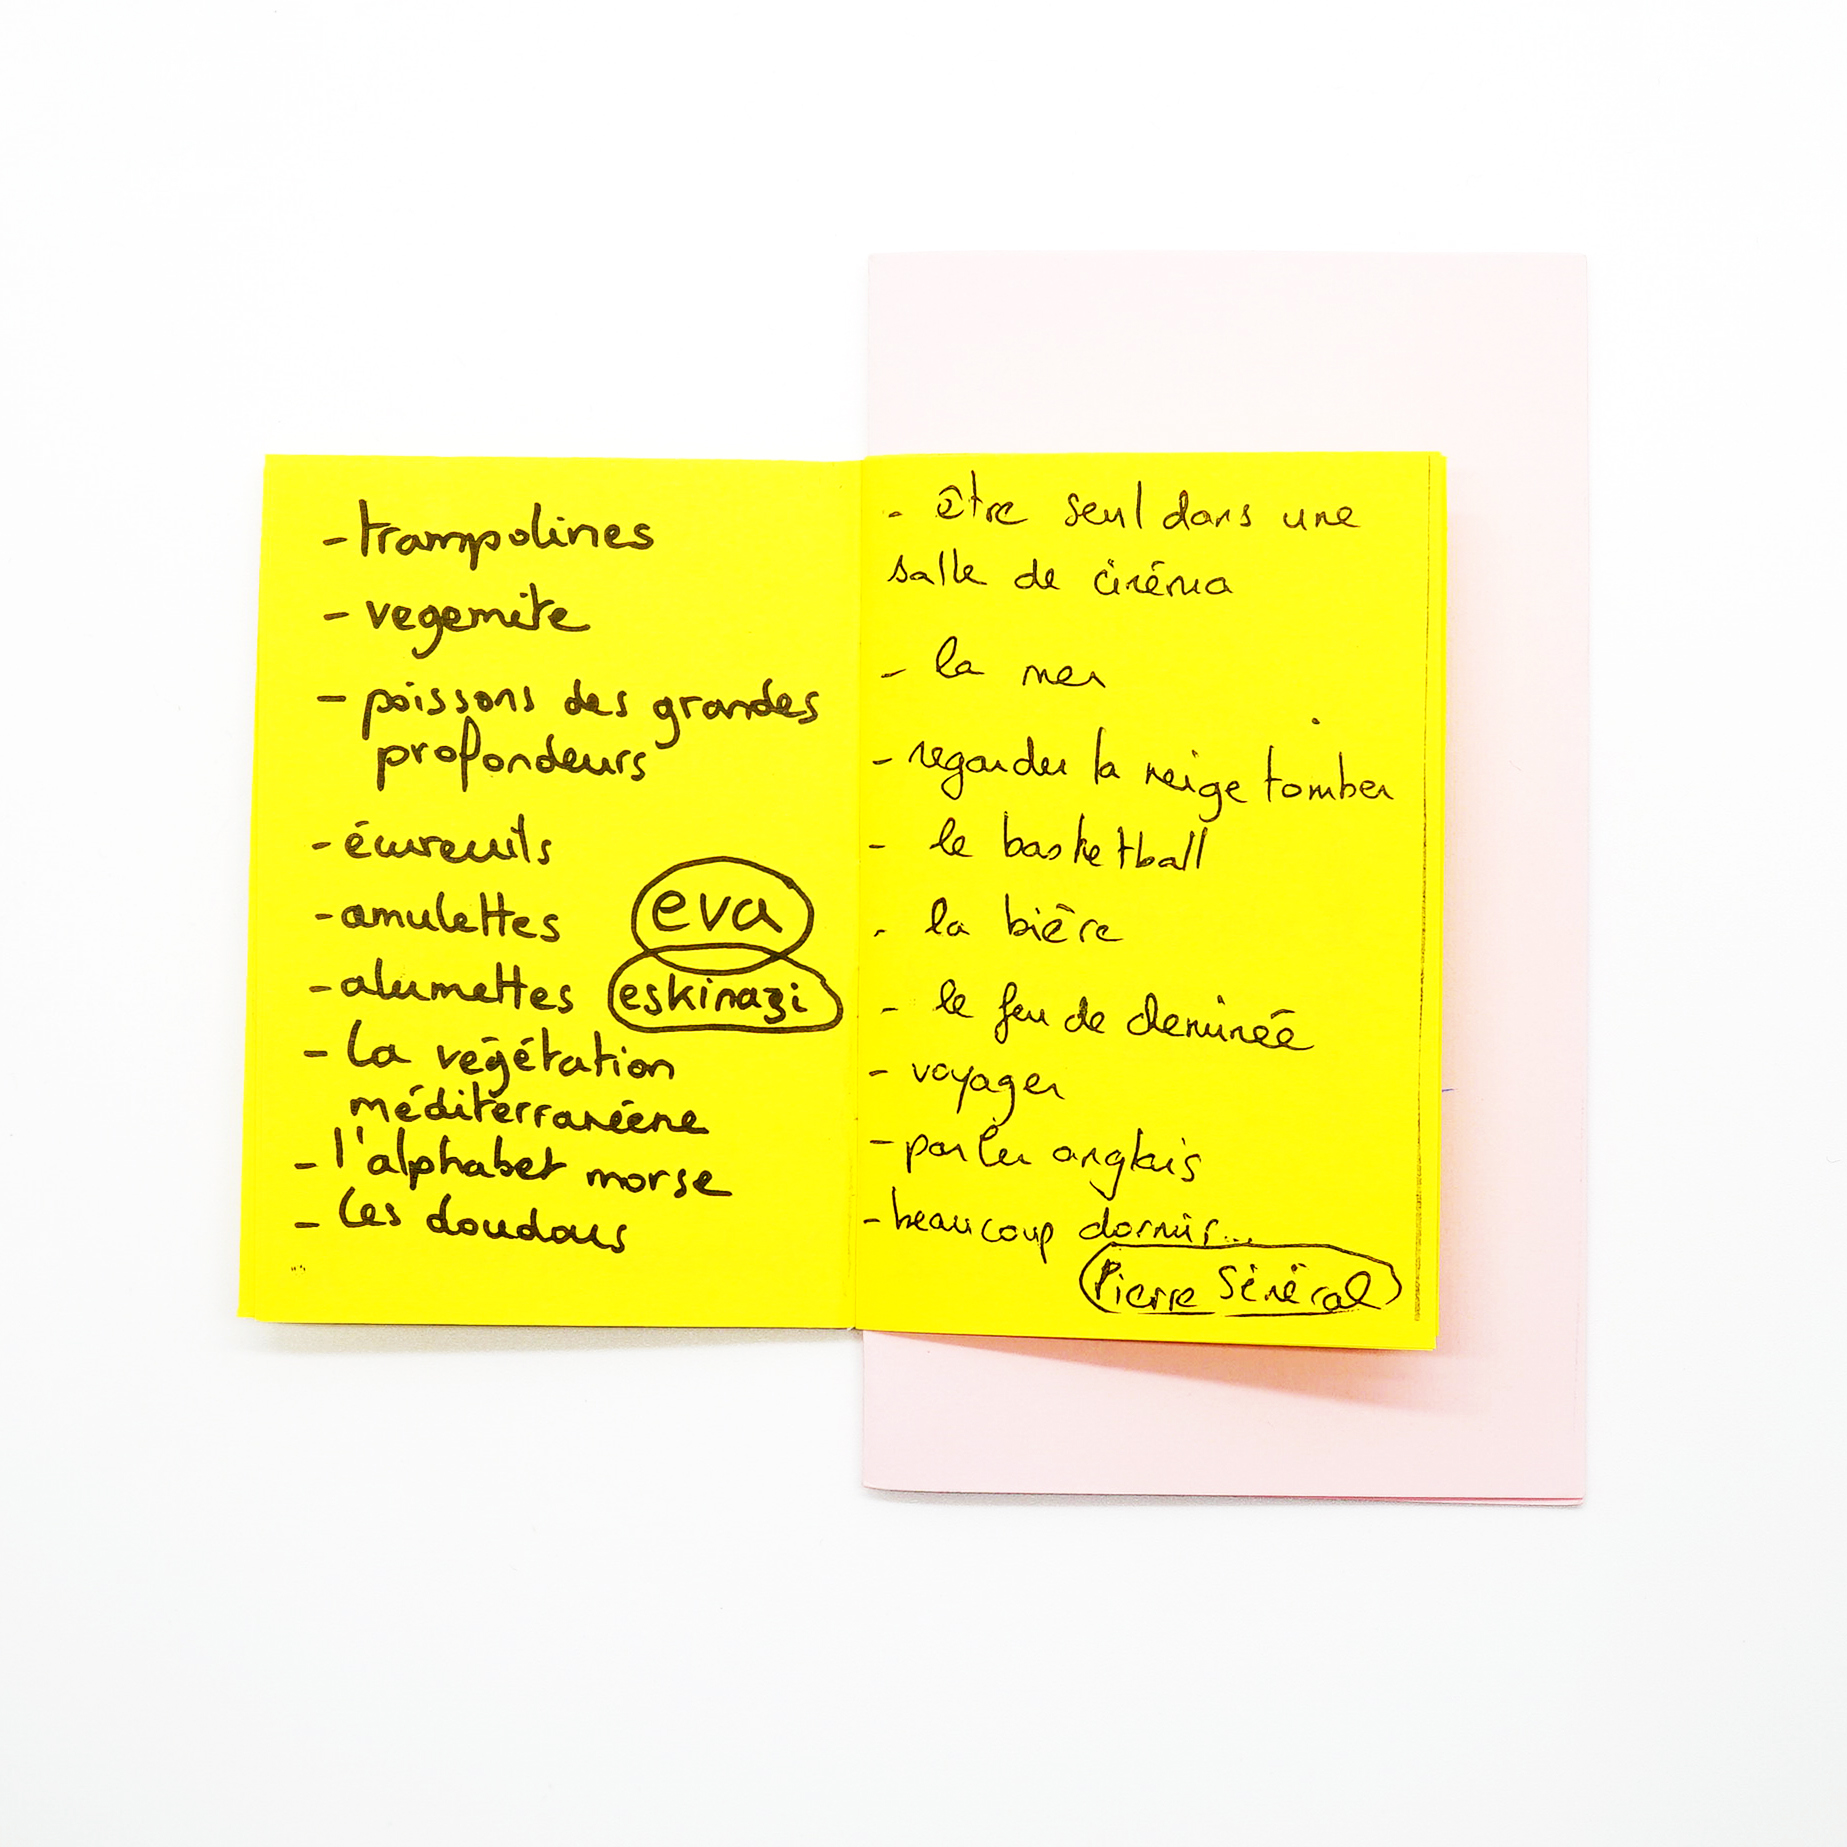 - trampolines
- vegemite
- poissons des grandes
profondeurs
- écureuils
- amulettes
- alumettes
eva
eskinazi
- la végétation
méditerranéene
- l'alphabet morse
- les doudous
- être seul dans une
salle de cinéma
- la mer
- regarder la neige tomber
- le basketball
- la bière
- le feu de cheminée
- voyager
- parler anglais
- beaucoup dormir...
Pierre Sénéral